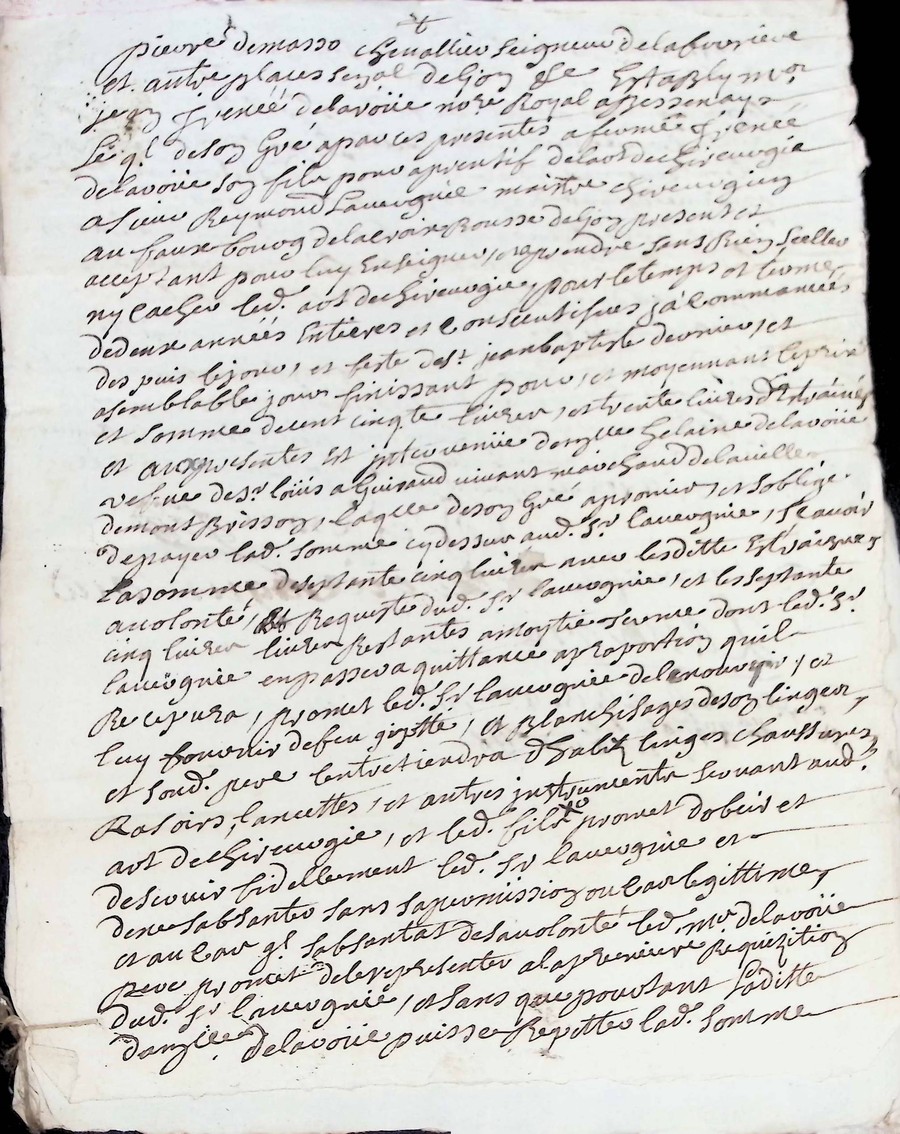 pierre demasso chevallier seigneur delaferriere
et autre places senal delyon &e Estably mre
jean Irenée delavoüe nore Royal abessenays
Leql desoy Gré aparces presentes afermé Irenée
delavoüe soy fils pour aprentif delart dechireurgie
asieur Raymond Lavergnie maistre chireurgiey
aufaux bourg delacroix Rousse delyoy present et
acceptant pour luy Enseigner, etaprendre sans Riey sceller
ny cacher led. art dechireurgie, pour letemps et terme
dedeux années Entieres et consecutifves ja commancées
des puis lejour, et feste dest jeanbaptiste dernier, et
asemblable jour finissant pour, et moyennant leprix
et somme decent cinqte livres, ettrente livres d'Estraines
et auxpresentes Est intervenüe demzlle helaine delavoüe
vefve desr Loüis aGuiraud vivant marchand delaville
demont Brisson, laqlle desoy Gré apromis, et soblige
depayer lad. somme cydessus aud. Sr Lavergnie, scavoir
Lasomme deseptante cinq livres avec lesditte Estraines,
avolonté, Requeste dud. Sr Lavergnie, et lesseptante
cinq livres livres Restantes amoytie terme dont led. Sr
Lavergnie enpassera quittance aproportioy quil
Recepvra, promet led. Sr Lavergnie delenourrir, et
luy fournir defeu gitte, et Blanchisages desoy linge
et soud. pere lentretiendra d'habit linges chaussures,
Rasoirs, lancettes, et autres instruments servant aud.
art dechireurgie, et led. fils promet dobeir et
deservir fidellement led. Sr Lavergnie et
dene sabsanter sans sapermissioy ou cas legittime,
et au cas ql sabsantat desavolonté led. mre delavoüe
pere promet delerepresenter alapremiere Requizitioy
dud. Sr Lavergnie, etsans que pourtant Laditte
damzlle delavoüe puisse Repetter lad. somme